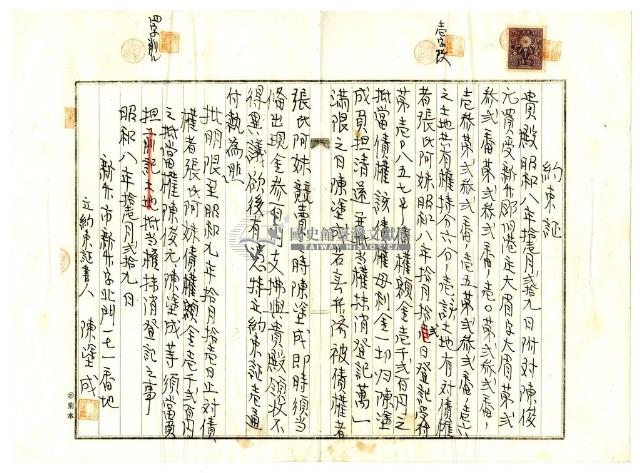 四字削除
壱字改
約束証
貴殿昭和八年拾弐月弐拾九日附対陳俊
元買受新竹郡旧港庄大眉字大眉第弐
参弐番第弐参弐番ノ壱〇第弐参弐番ノ
壱参第弐参弐番ノ壱五第弐参弐番ノ壱六
之土地共有権持分六分ノ壱該土地有対債権
者張氏阿妹昭和八年拾月拾弐日登記受付
第壱〇八五七号債権額金壱千弐百円之
抵当債権該債権母利金一切归陳塗
成負担清還並抵当権抹消登記萬一
満限之日陳塗成若有不済被債権者
張氏阿妹競売時陳塗成即時須当
備出現金参百円支拂與貴殿領收不
得異議欲後有憑特立約束証壱通
付執為炤
批明限至昭和九年拾月拾壱日止対債
権者張氏阿妹債権額金壱千弐百円
之抵當権陳俊元陳塗成等須當負
担 土地抵当権抹消登記之事
昭和八年拾弐月弐拾九日
新竹市新竹字北門一七一番地
立約束証書人 陳塗成
國史館臺灣文獻館
TAIWAN HISTORICA